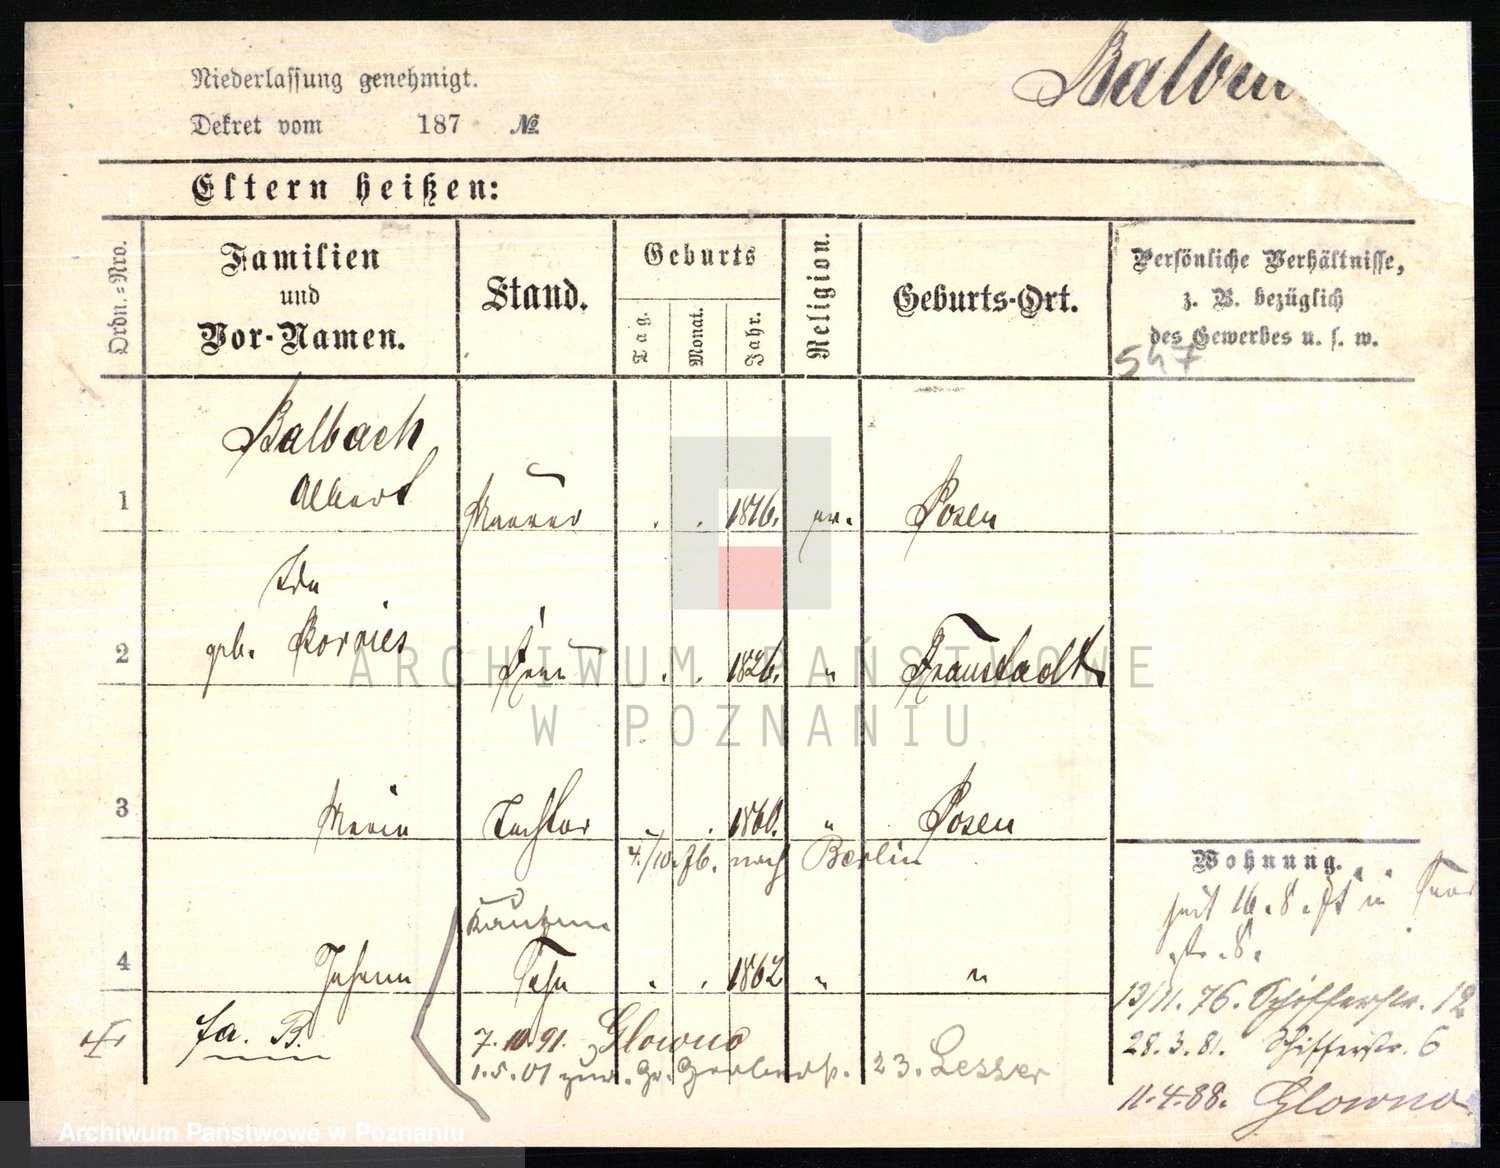 Niederlassung genehmigt.
Dekret vom 187 №
Eltern heißen:
Ordn.-Nro.
Familien
und
Vor-Namen.
Stand.
Geburts
Tag.
Monat.
Jahr.
Religion.
Geburts-Ort.
Persönliche Verhältnisse,
z. B. bezüglich
des Gewerbes u. s. w.
547
Balbach
Albert
1 Maurer . . 1816. ev. Posen
Ida
geb. Borries
2 Frau . . 1826. " Fraustadt
3 Marie Tochter . . 1860. " Posen
4./10.76. nach Berlin
Kaufm
4 Johann Sohn . . 1862 " "
fa. B.
7.10.91. Glowno
1.5.01 zur. Gr. Gerberstr. 23. Lesser
Wohnung.
seit 16.8. in
str. 8.
13/11.76. Schifferstr. 12
28.3.81. Schifferstr. 6
11.4.88. Glowno
ARCHIWUM PAŃSTWOWE
W POZNANIU
Archiwum Państwowe w Poznaniu